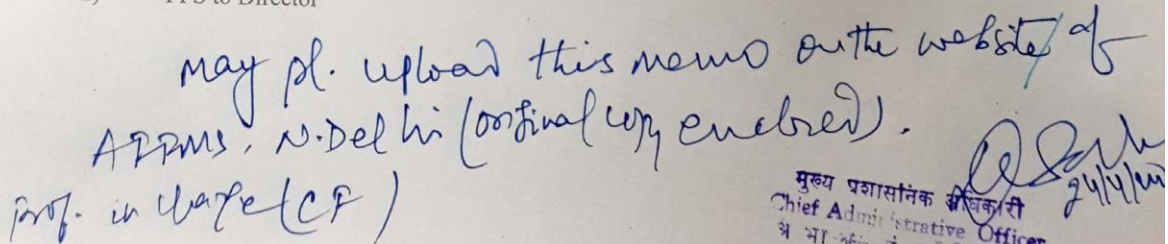 PPS to Director
May pl. upload this memo on the website of
AIIMS, N. Delhi (original copy enclosed).
Prof. in charge (CF)
मुख्य प्रशासनिक अधिकारी
Chief Administrative Officer